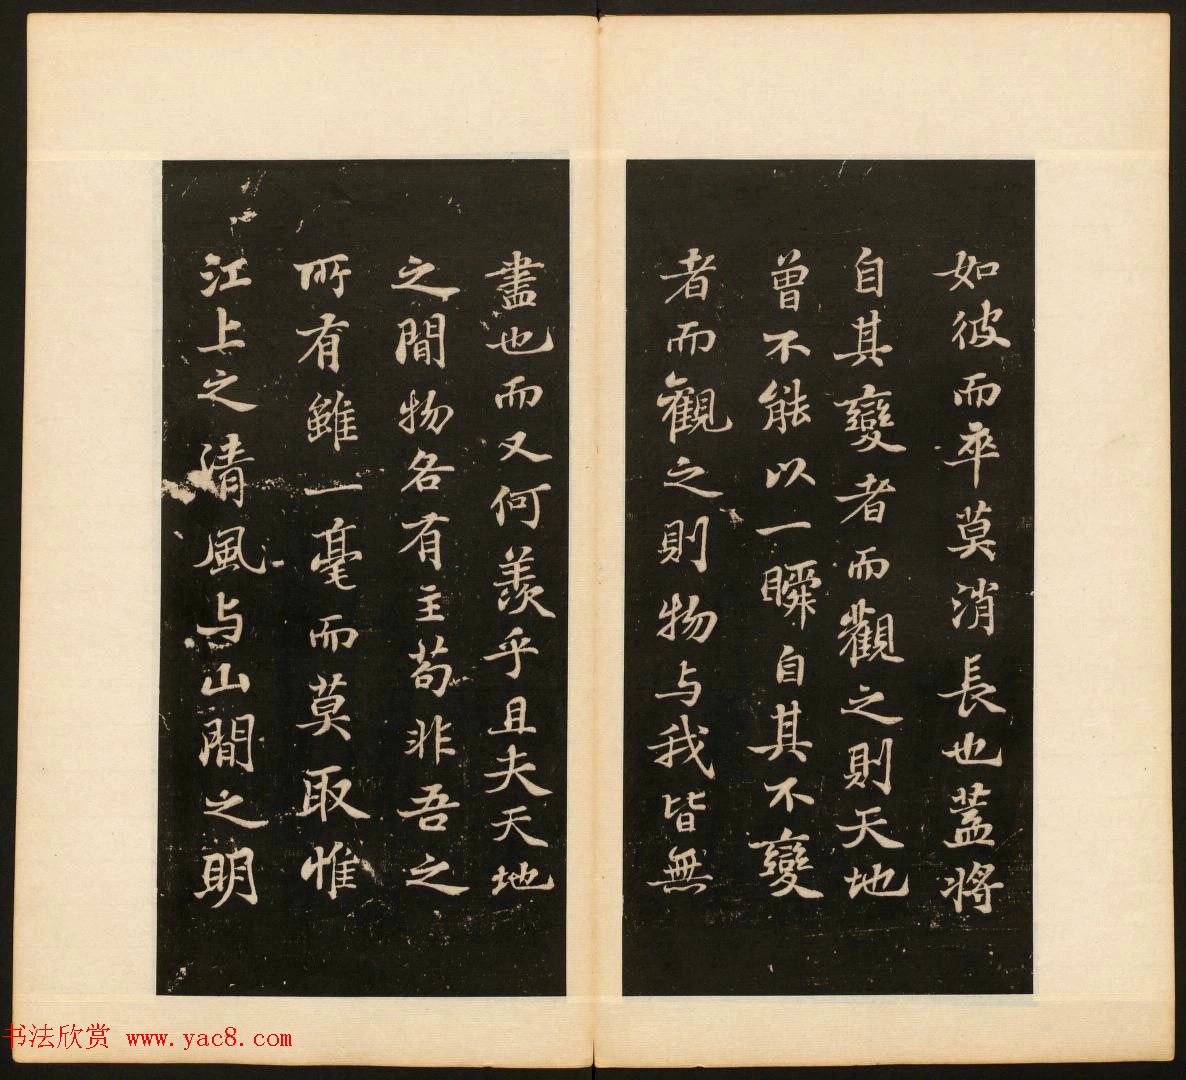 如彼而卒莫消長也蓋將
自其變者而觀之則天地
曾不能以一瞬自其不變
者而觀之則物与我皆無
盡也而又何羨乎且夫天地
之間物各有主苟非吾之
所有雖一毫而莫取惟
江上之清風与山間之明
书法欣赏 www.yac8.com